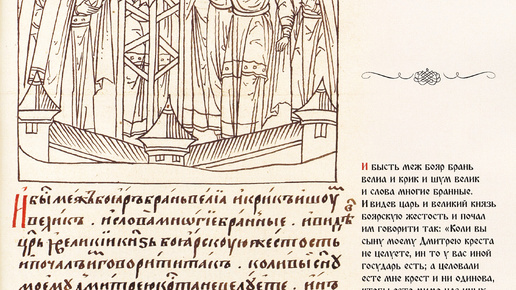 И бы меж ъ боѧръ брань велїа и крикъ и шоу
великъ . и слова многїе бранные . и видѣ
црь ї великїи кнзь боѧрскую жестость
и почалъ имъ говорити такъ . коли вы сноу
моемоу дмитрею крта не целуете , инъ
И бысть меж бояр брань
велиа и крик и шум велик
и слова многие бранные.
И видев царь и великий князь
боярскую жестость и почал
им говорити так: «Коли вы
сыну моему Дмитрею креста
не целуете, ин то у вас иной
государь есть; а целовали
есте мне крест и ни одинова,